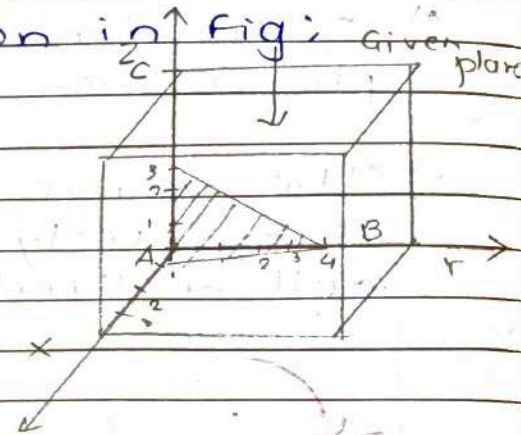 on in Fig:
Given
plane
Z
C
3
2
1
A
B
2 3 4
Y
2
3
X